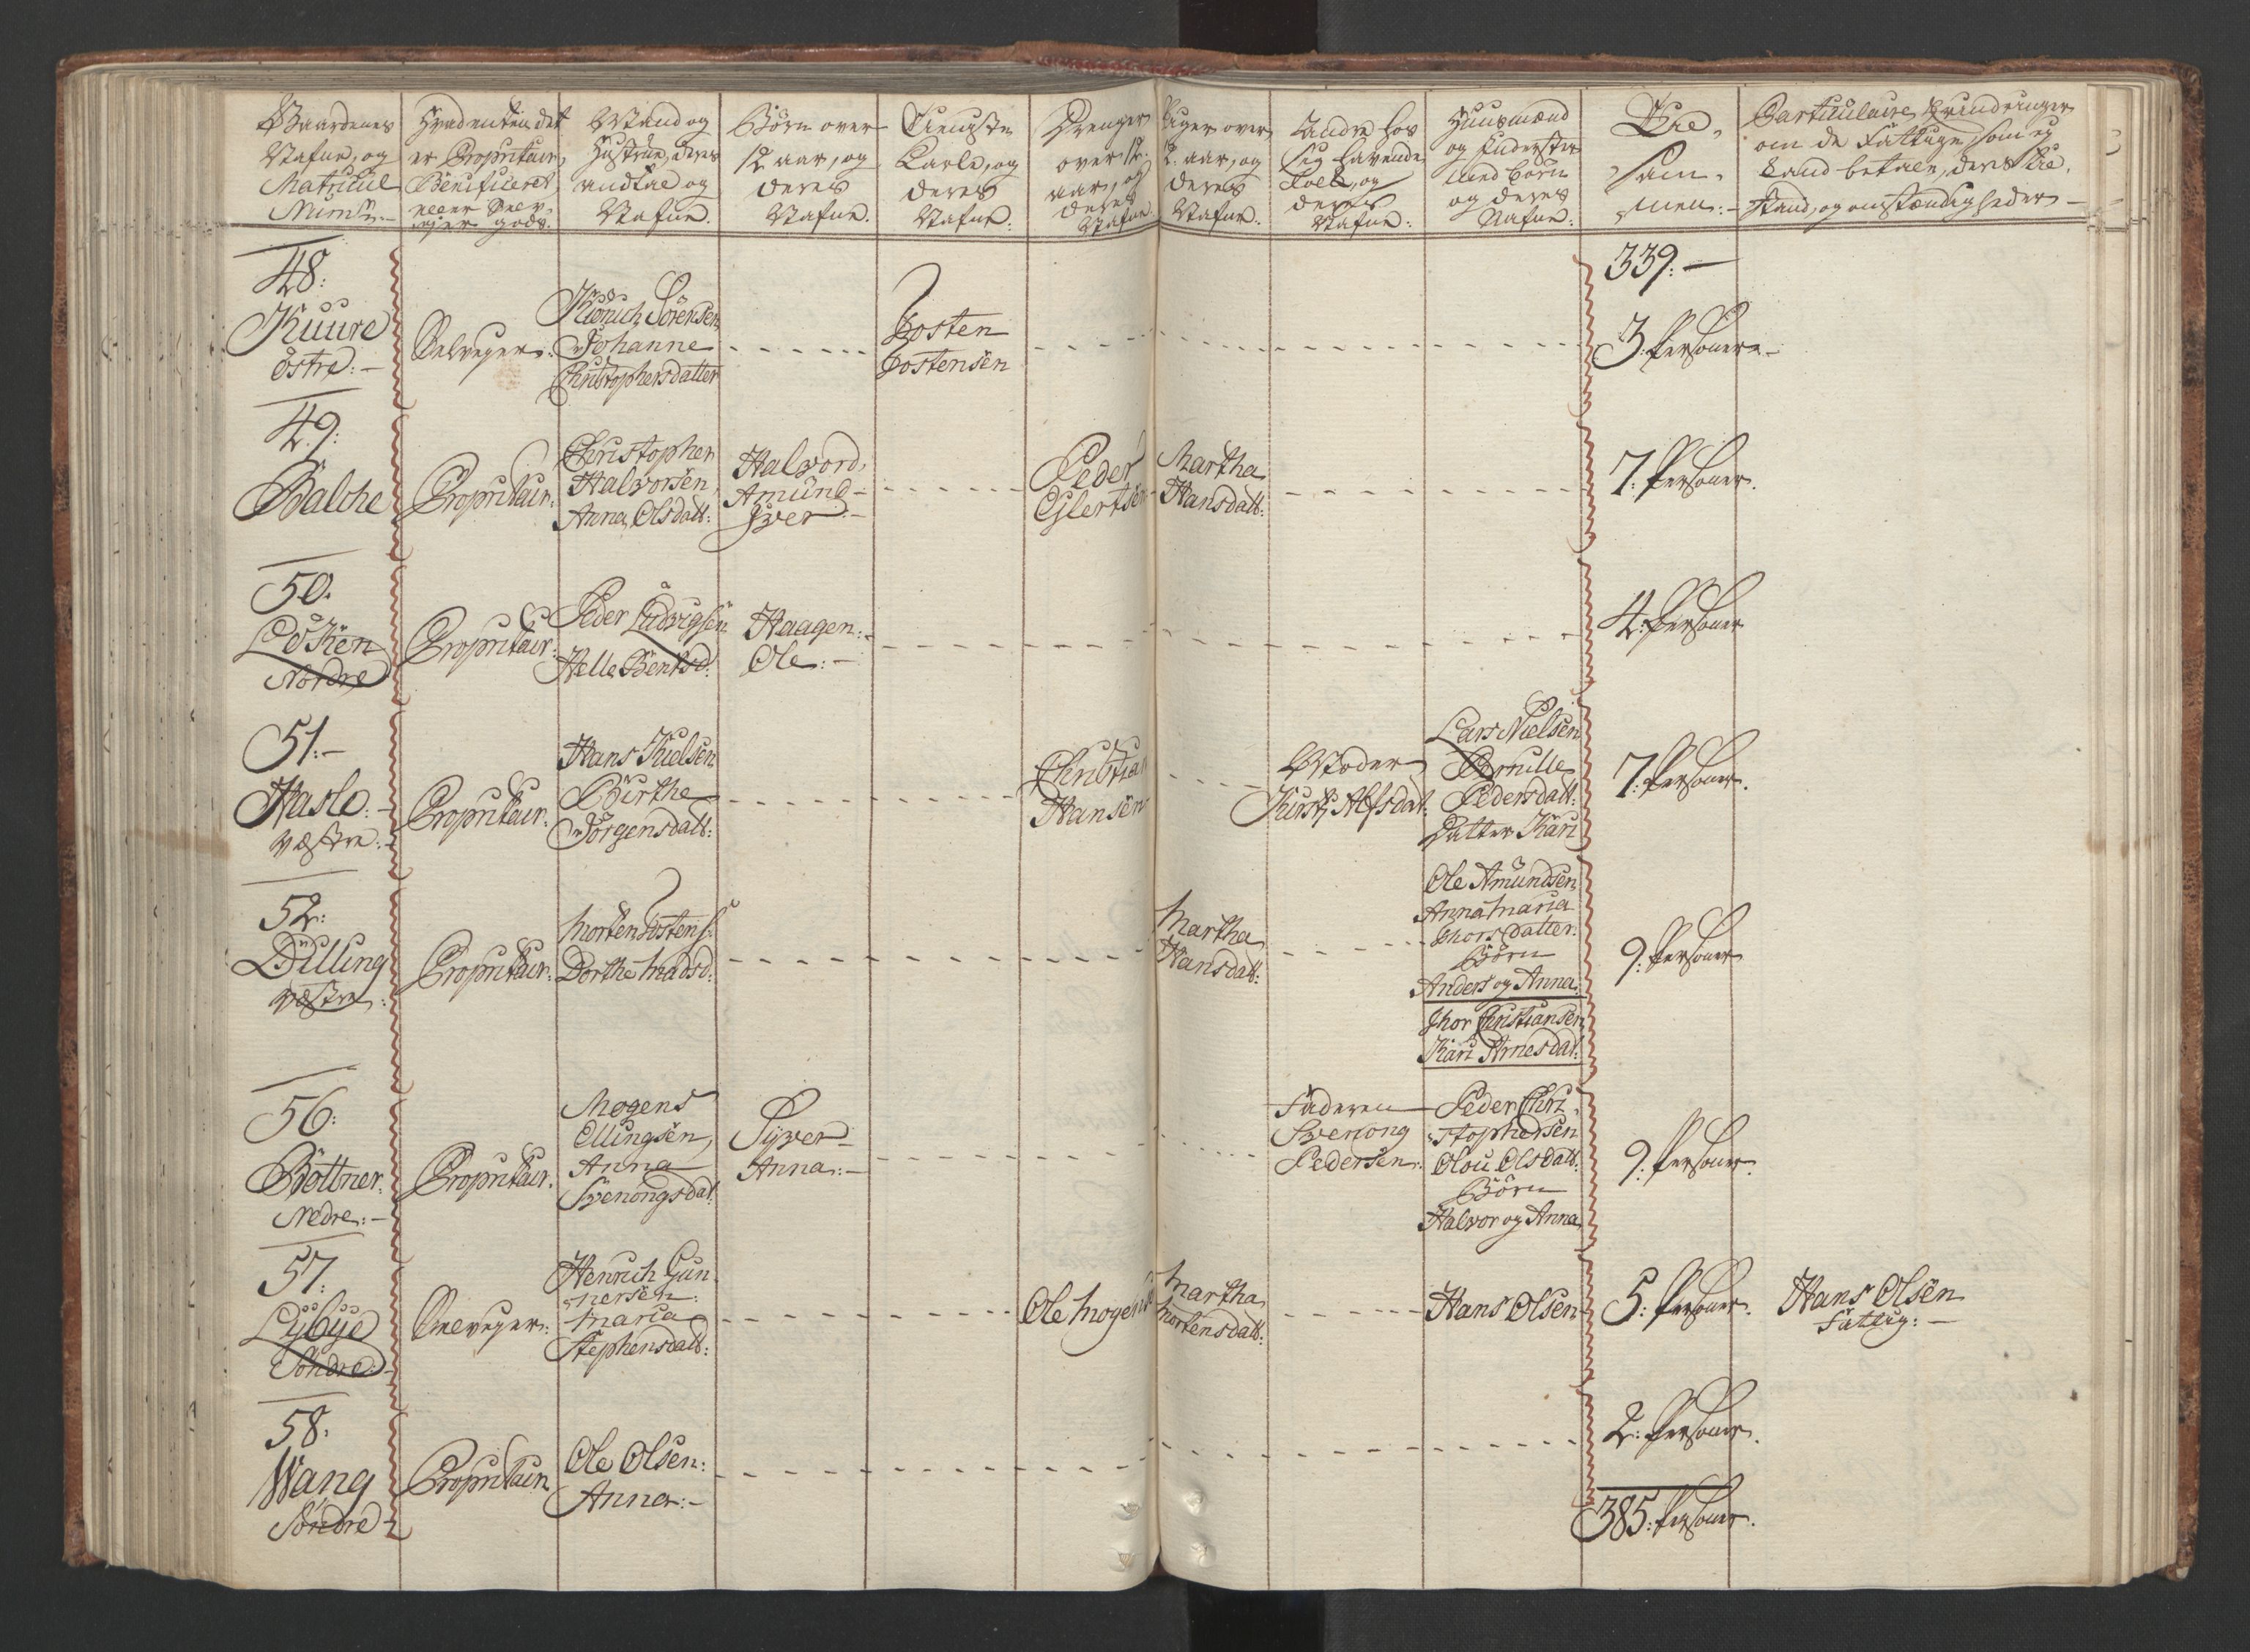 Gaardenes
Nafne, og
Matricul
Num:
Hvad enten det
er Propritair,
Beneficeret
eller Selv-
ejer gods.
Mand og
Hustrue, deres
andtal og
Nafne.
Börn over
12 aar, og
deres
Nafne.
Tieniste
Karle, og
deres
Nafne:
Drenger
over 12
aar, og
deres
Nafne
Piger over
12 aar, og
deres
Nafne.
Andre hos
sig havende
Folk, og
deres
Nafne:
Huusmænd
og Inderster
med börn
og deres
Nafne:
Til-
sam-
men:
Particulaire Erindringer
om de Fattige som ej
kand betale, deres til-
stand, og omstændigheder
339:
48:
Kuure
östre:
Selvejer:
Sörensen
Johanne
Christophersdatter
Josten
Jostensen
3: Personer
49:
Balche
Propritair:
Christopher
Halvorsen
Anna Olsdatt:
Halvord,
Amund
Iver:
Peder
Ejlertsen
Martha
Hansdatt:
7: Personer.
50.
Löken
Nordre
Propritair:
Peder Ludvigsen
Helle Bentsd:
Haagen:
Ole:
4: Personer
51:
Hasle:
Vestre:
Propritair:
Hans Kielsen
Birthe
Jörgensdatt:
Christian
Hansen
Moder
Kirst: Alfsdat:
Lars Nielsen
Pernille
Pedersdatt:
Datter Kari
7: Personer.
52:
Dilling
vestre:
Propritair:
Morten Jostens:
Dorthe Madsd:
Martha
Hansdatt:
Ole Amundsen
Anna Maria
Thorsdatter:
Börn
Anders og Anna:
Thor Christiansen
Kari Arnesdat:
9: Personer
56:
Böttner.
Nedre:
Propritair.
Mogens
Ellingsen,
Anna
Svenongsdat:
Syver
Anna:
Faderen
Svenong
Pedersen:
Peder Chri-
stophersen
Olou Olsdatt:
Börn
Halvor og Anna
9: Personer.
57:
Lybye
Söndre:
Selvejer:
Henrich Gun-
nersen:
Maria
Stephensdatt:
Ole Mogens:
Martha
Mortensdatt:
Hans Olsen
5: Personer.
Hans Olsen
Fattig:
58.
Wang
Söndre
Propritair
Ole Olsen:
Anna:
2: Personer.
385: Personer.